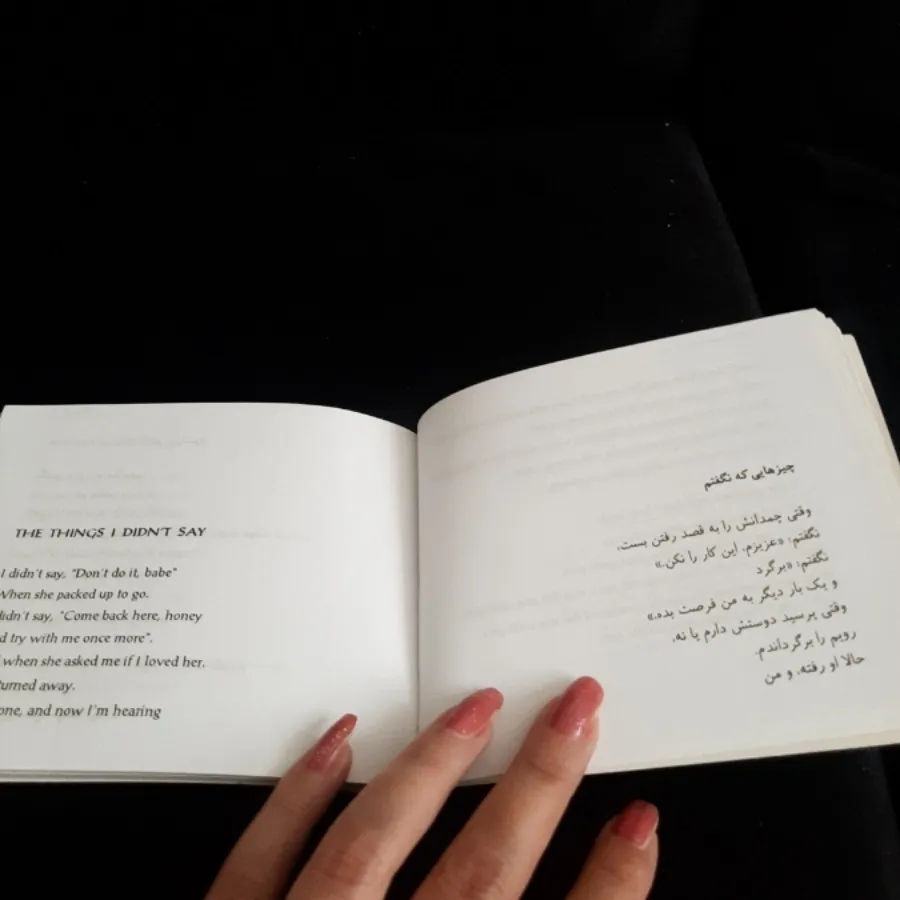 THE THINGS I DIDN'T SAY
I didn't say, "Don't do it, babe"
When she packed up to go.
didn't say, "Come back here, honey
d try with me once more".
when she asked me if I loved her,
turned away.
one, and now I'm hearing
چیزهایی که نگفتم
وقتی چمدانش را به قصد رفتن بست،
نگفتم: «عزیزم، این کار را نکن.»
نگفتم: «برگرد
و یک بار دیگر به من فرصت بده.»
وقتی پرسید دوستش دارم یا نه،
رویم را برگرداندم.
حالا او رفته، و من